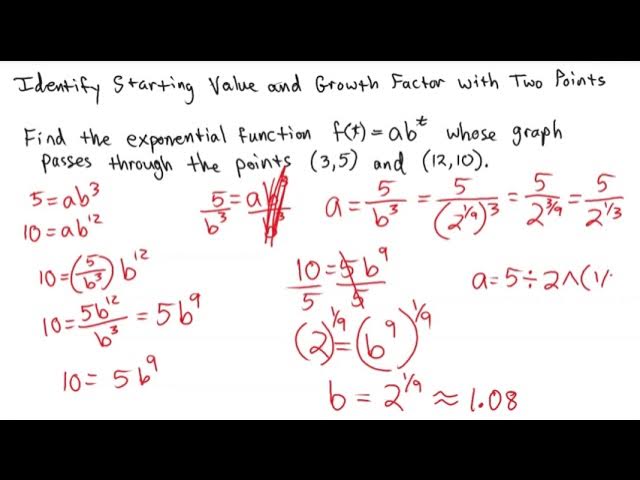 Identify Starting Value and Growth Factor with Two Points
Find the exponential function f(t) = ab^t whose graph
passes through the points (3,5) and (12,10).
5 = ab^3
10 = ab^12
10 = (5/b^3) b^12
10 = 5b^12/b^3 = 5b^9
10 = 5b^9
5/b^3 = ab^3/b^3
10/5 = 5b^9/5
(2)^1/9 = (b^9)^1/9
b = 2^1/9 ≈ 1.08
a = 5/b^3 = 5/(2^1/9)^3 = 5/2^3/9 = 5/2^1/3
a = 5 ÷ 2 ^ (1/